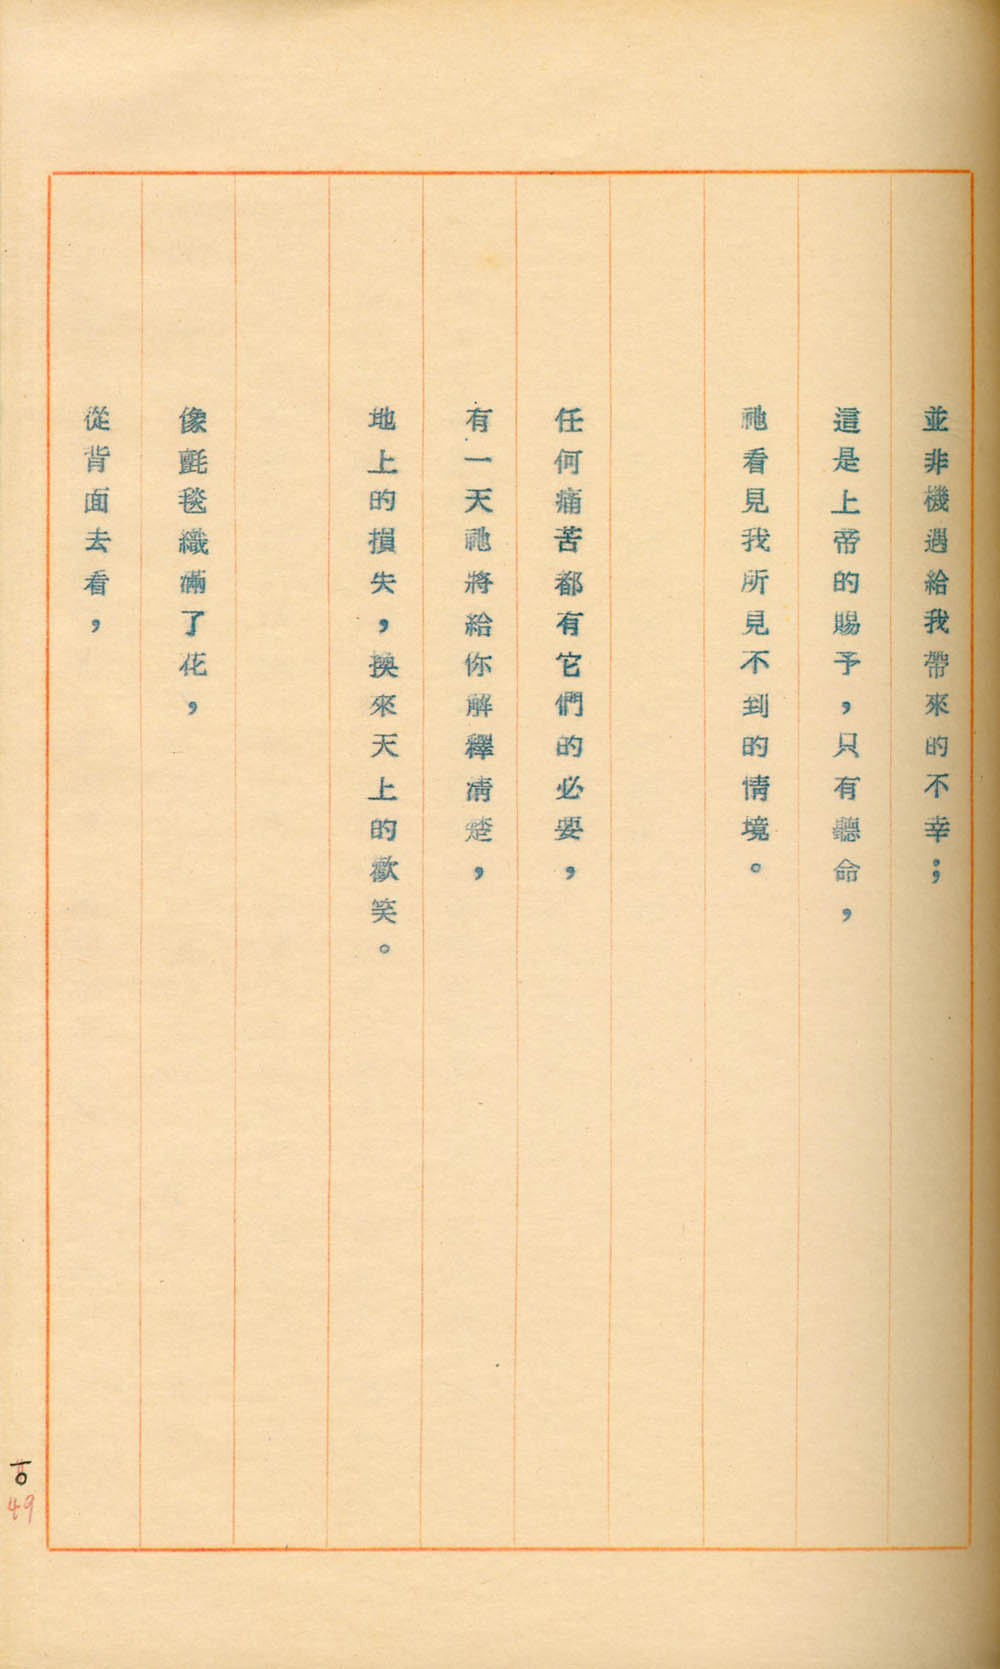 並非機遇給我帶來的不幸；
這是上帝的賜予，只有聽命，
祂看見我所見不到的情境。
任何痛苦都有它們的必要，
有一天祂將給你解釋清楚，
地上的損失，換來天上的歡笑。
像氈毯織滿了花，
從背面去看，
一〇
49